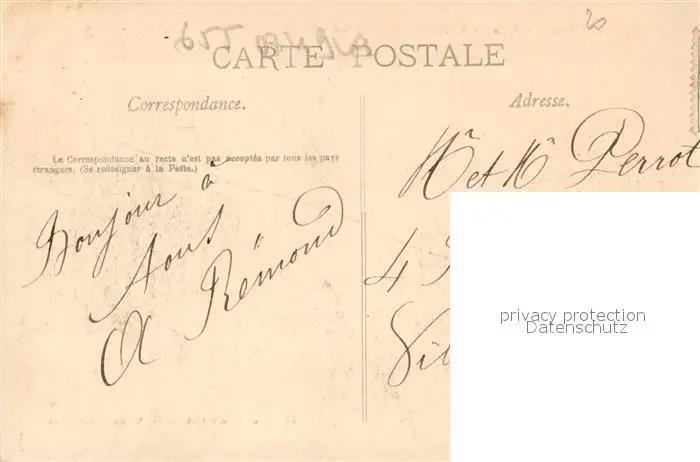 CARTE POSTALE
Correspondance.
La Correspondance au recto n'est pas acceptée par tous les pays
étrangers. (Se renseigner à la Poste.)
Bonjour à
tous
A Rémond
Adresse.
Mr et Me Perrot
4
privacy protection
Datenschutz
20